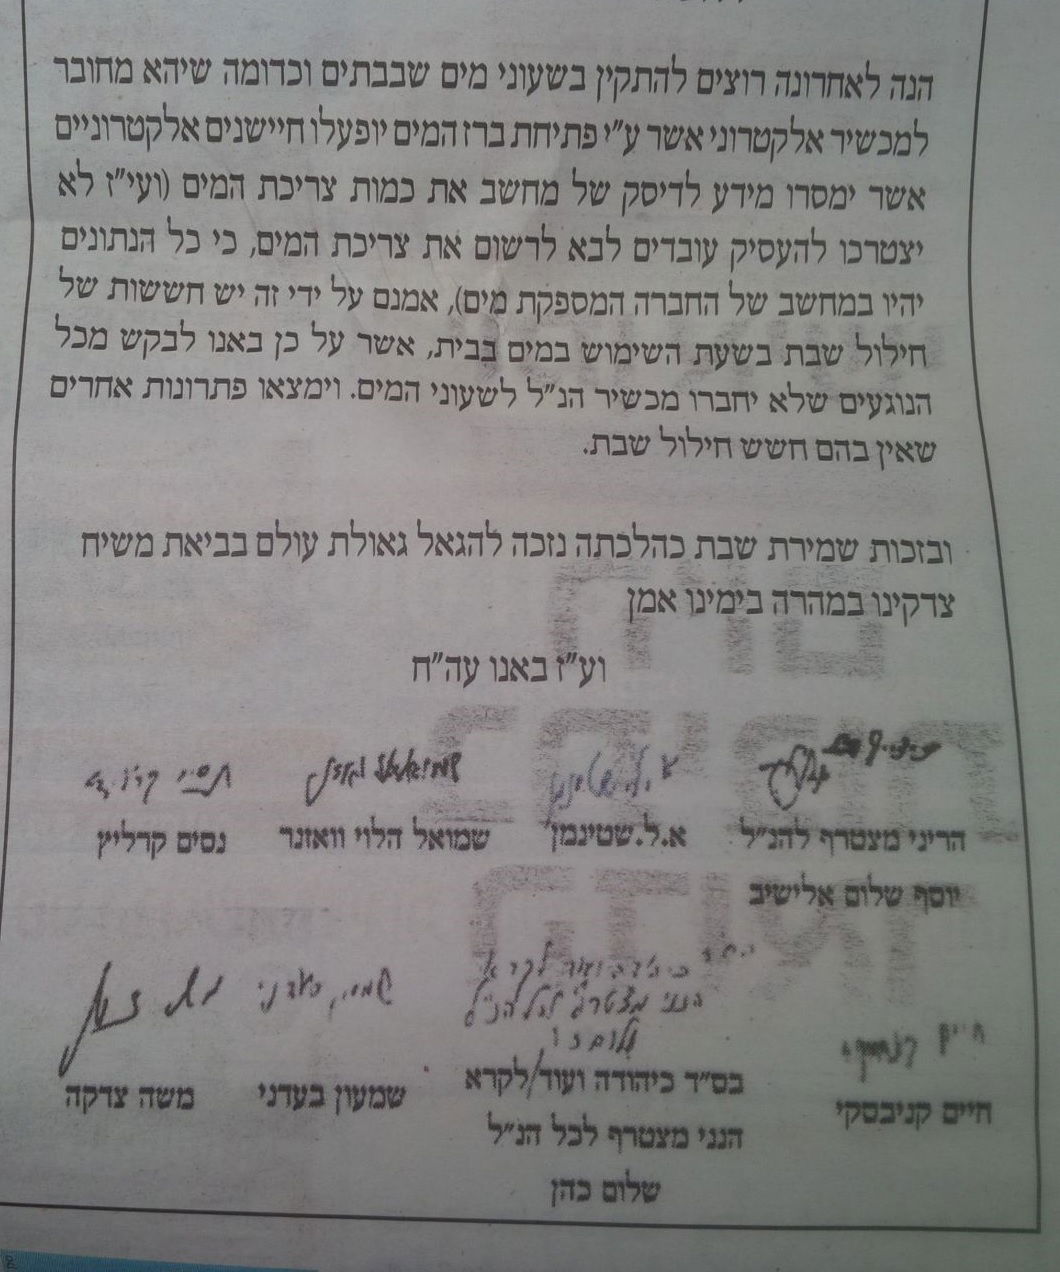 הנה לאחרונה רוצים להתקין בשעוני מים שבבתים וכדומה שיהא מחובר
למכשיר אלקטרוני אשר ע"י פתיחת ברז המים יופעלו חיישנים אלקטרוניים
אשר ימסרו מידע לדיסק של מחשב את כמות צריכת המים (ועי"ז לא
יצטרכו להעסיק עובדים לבא לרשום את צריכת המים, כי כל הנתונים
יהיו במחשב של החברה המספקת מים), אמנם על ידי זה יש חששות של
חילול שבת בשעת השימוש במים בבית, אשר על כן באנו לבקש מכל
הנוגעים שלא יחברו מכשיר הנ"ל לשעוני המים. וימצאו פתרונות אחרים
שאין בהם חשש חילול שבת.
ובזכות שמירת שבת כהלכתה נזכה להגאל גאולת עולם בביאת משיח
צדקינו במהרה בימינו אמן
וע"ז באנו עה"ח
שמואל ואזנר
נסים קרליץ
הריני מצטרף להנ"ל
א.ל.שטינמן
שמואל הלוי וואזנר
נסים קרליץ
יוסף שלום אלישיב
הנני מצטרף לכל הנ"ל
שלום כהן
שמעון בעדני
חיים קניבסקי
בס"ד כיהודה ועוד/לקרא
שמעון בעדני
משה צדקה
חיים קניבסקי
הנני מצטרף לכל הנ"ל
שלום כהן